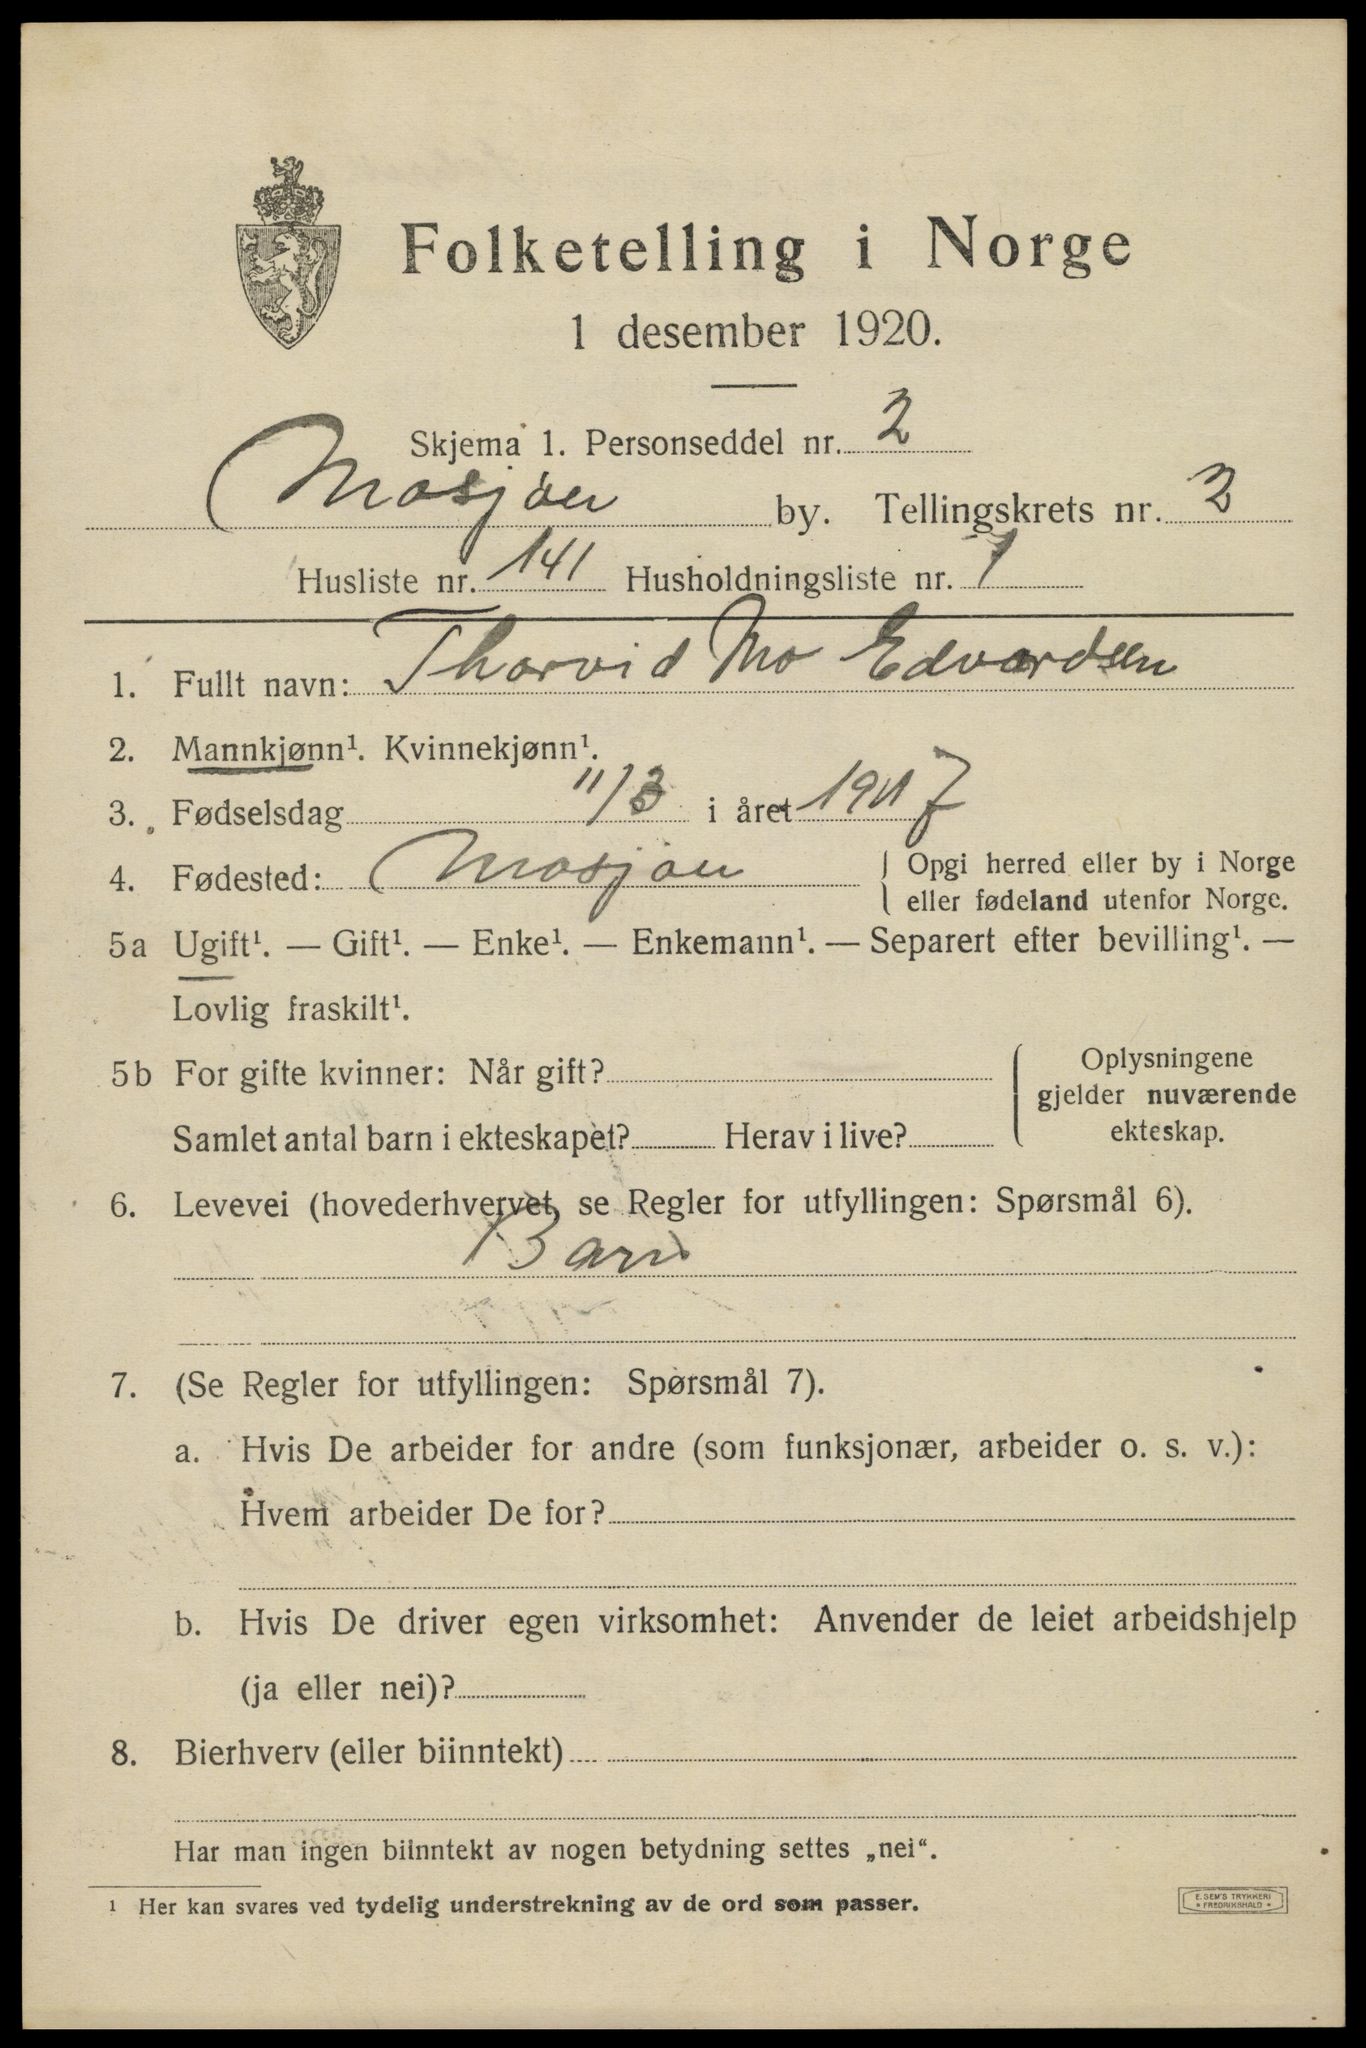 Folketelling i Norge
1 desember 1920.
Skjema 1. Personseddel nr. 2
Mosjøen by. Tellingskrets nr. 2
Husliste nr. 141 Husholdningsliste nr. 1
1. Fullt navn: Thorvid Mo Edvardsen
2. Mannkjønn¹. Kvinnekjønn¹.
3. Fødselsdag 11/3 i året 1917
4. Fødested: Mosjøen { Opgi herred eller by i Norge
eller fødeland utenfor Norge.
5a Ugift¹. — Gift¹. — Enke¹. — Enkemann¹. — Separert efter bevilling¹. —
Lovlig fraskilt¹.
5b For gifte kvinner: Når gift? { Oplysningene
gjelder nuværende
Samlet antal barn i ekteskapet? Herav i live? ekteskap.
6. Levevei (hovederhvervet, se Regler for utfyllingen: Spørsmål 6).
Barn
7. (Se Regler for utfyllingen: Spørsmål 7).
a. Hvis De arbeider for andre (som funksjonær, arbeider o. s. v.):
Hvem arbeider De for?
b. Hvis De driver egen virksomhet: Anvender de leiet arbeidshjelp
(ja eller nei)?
8. Bierhverv (eller biinntekt)
Har man ingen biinntekt av nogen betydning settes „nei“.
¹ Her kan svares ved tydelig understrekning av de ord som passer.
E. SEM'S TRYKKERI
* FREDRIKSHALD *